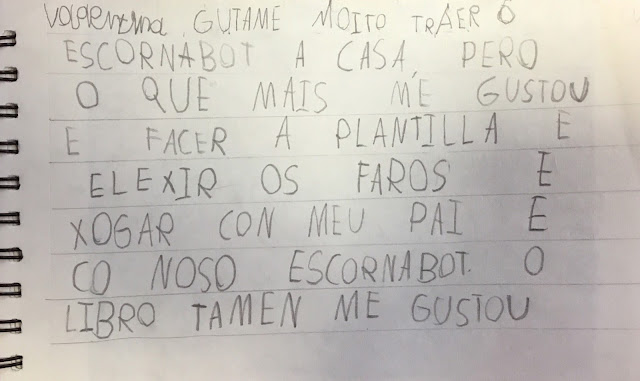 valentina GUTAME MOITO TRAER O
ESCORNABOT A CASA, PERO
O QUE MAIS ME GUSTOU
E FACER A PLANTILLA E
ELEXIR OS FAROS E
XOGAR CON MEU PAI E
CO NOSO ESCORNABOT. O
LIBRO TAMEN ME GUSTOU